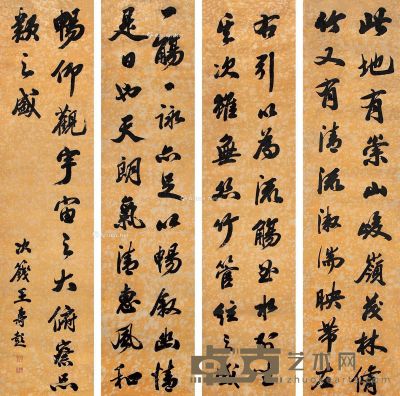 此地有崇山峻嶺茂林脩
竹又有清流激湍映帶左
右引以為流觴曲水列坐
其次雖無絲竹管弦之盛
一觴一詠亦足以暢敘幽情
是日也天朗氣清惠風和
暢仰觀宇宙之大俯察品
類之盛
次籛王壽彭
卓克艺术网
zhuokearts.com